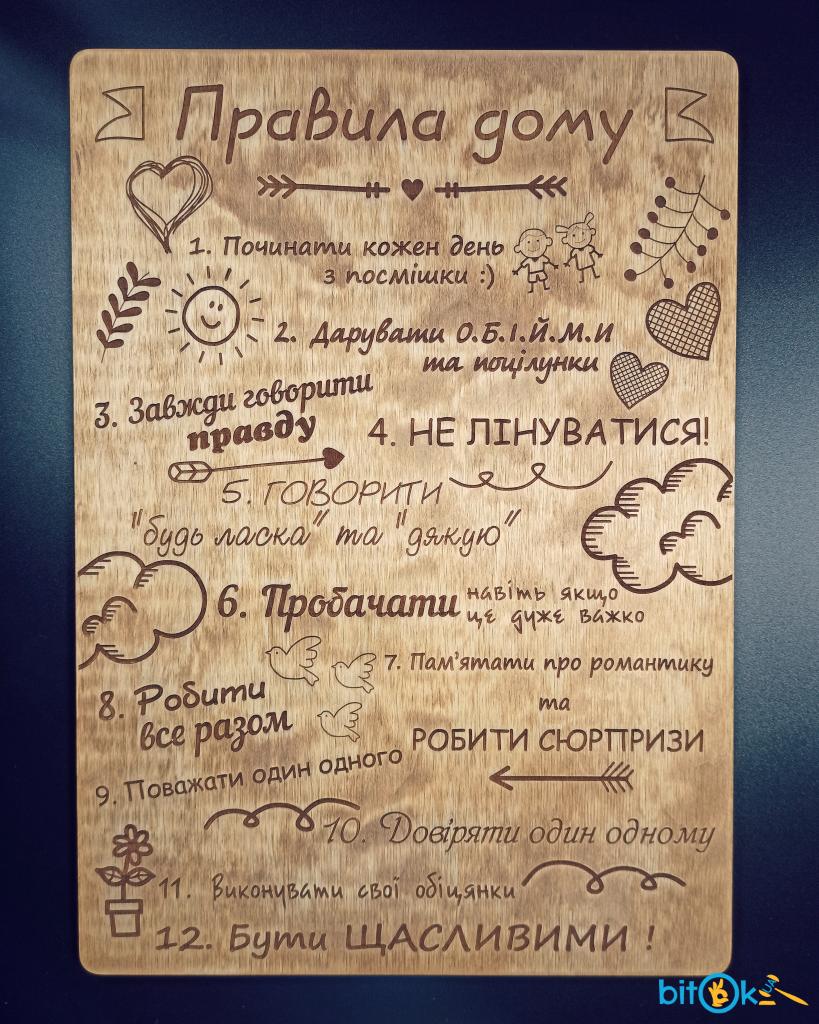 Правила дому
1. Починати кожен день
з посмішки :)
2. Дарувати О.Б.І.Й.М.И
та поцілунки
3. Завжди говорити
правду
4. НЕ ЛІНУВАТИСЯ!
5. ГОВОРИТИ
"будь ласка" та "дякую"
6. Пробачати навіть якщо
це дуже важко
7. Пам'ятати про романтику
та
РОБИТИ СЮРПРИЗИ
8. Робити
все разом
9. Поважати один одного
10. Довіряти один одному
11. Виконувати свої обіцянки
12. Бути ЩАСЛИВИМИ !
bitOk UA